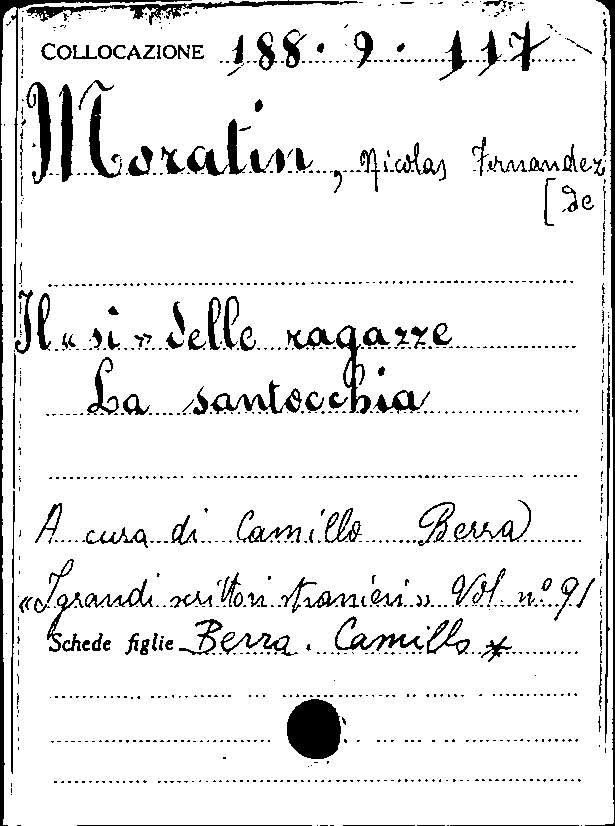 COLLOCAZIONE 188. 9. 117
Moratin, Nicolas Fernandez
[de
Il « si » delle ragazze
La santocchia
A cura di Camillo Berra
« I grandi scrittori stranieri » Vol. n° 91
Schede figlie Berra. Camillo *